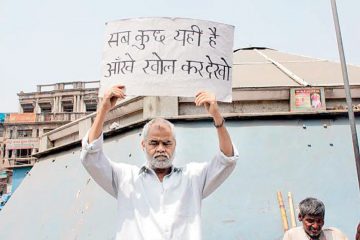 सब कुछ यही है
आँखे खोल कर देखो